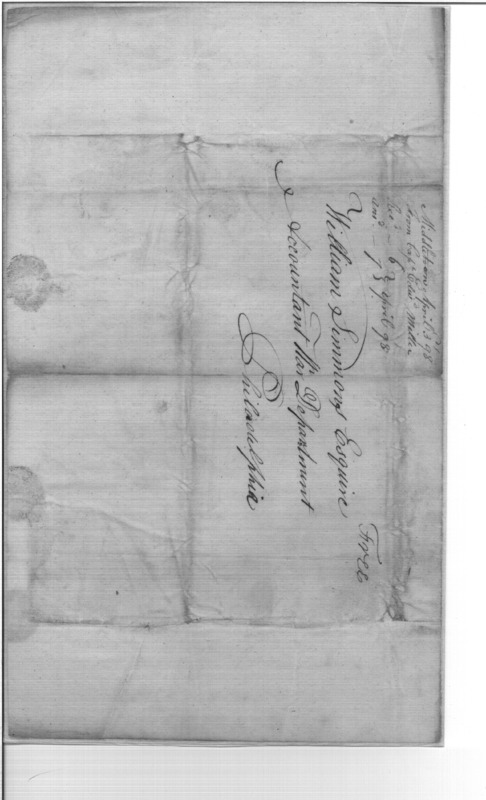 Middletown April 3d 98
from Capt Edwd Miller
recd - 6 } April 98
ansd - 7 }
Free
William Simmons Esquire
Accountant War Department
Philadelphia